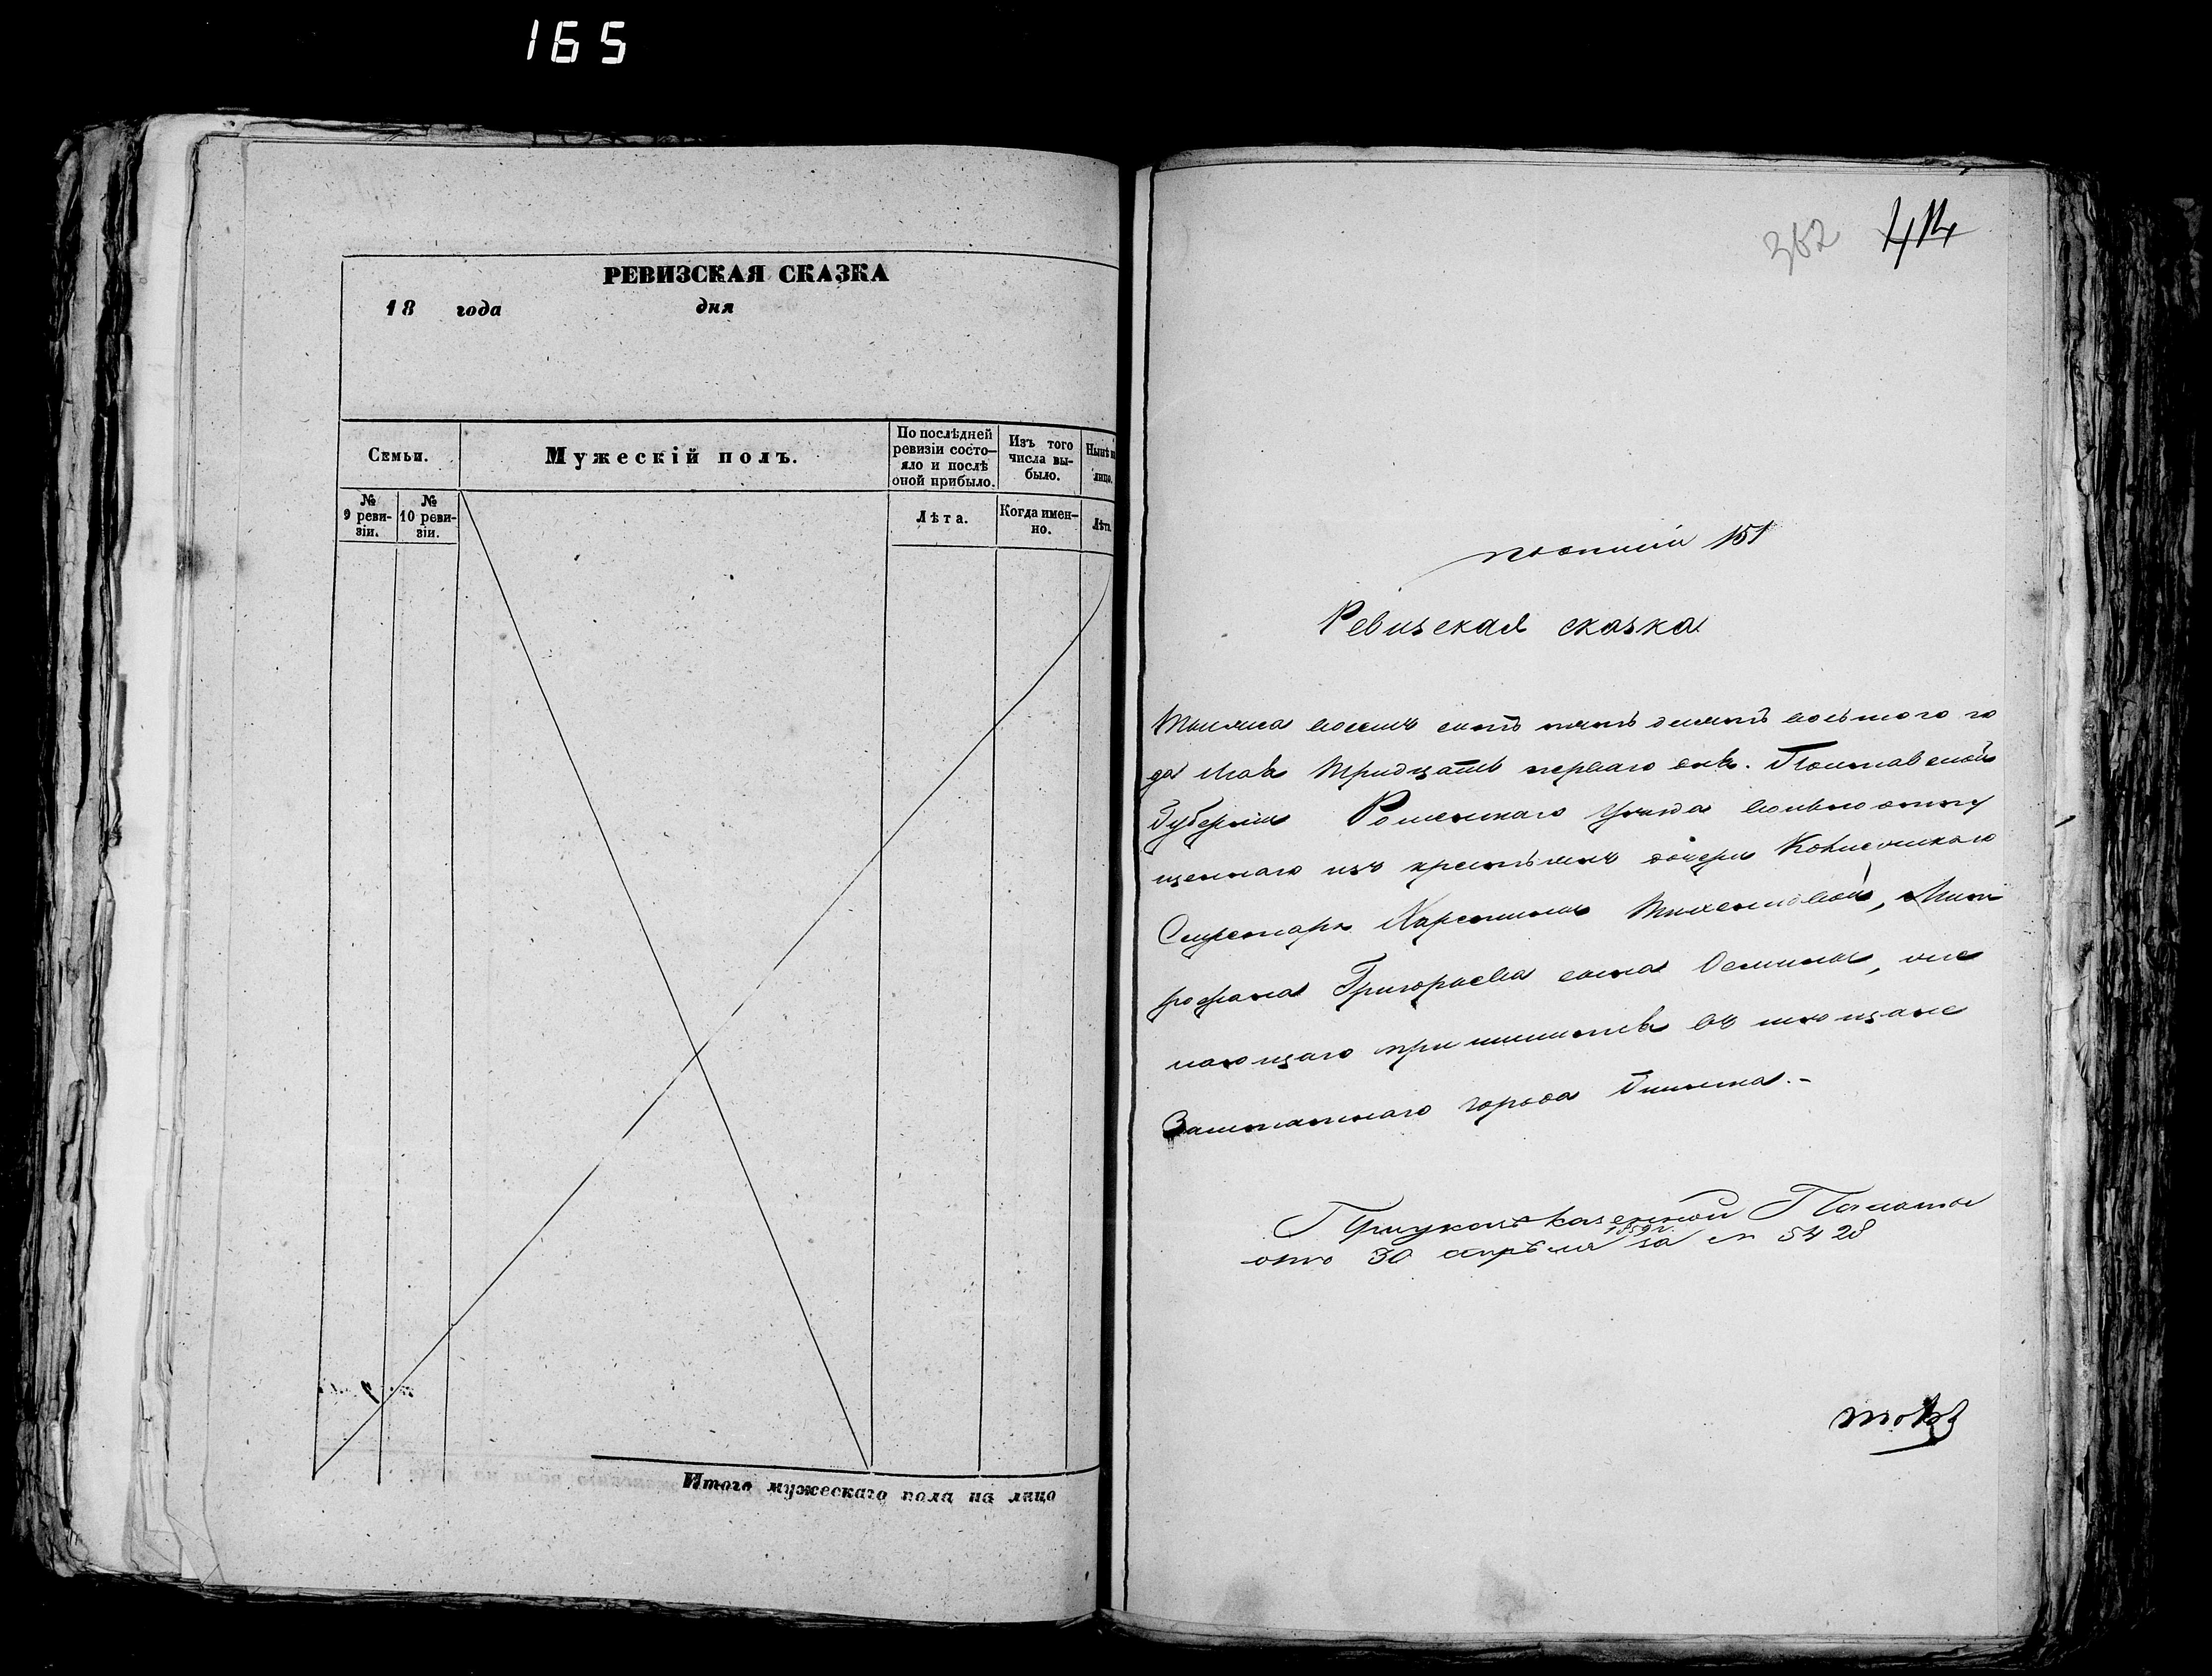 165
РЕВИЗСКАЯ СКАЗКА
18 года дня
Семьи.
Мужескій полъ.
По послѣдней ревизіи состо-
яло и послѣ
оной прибыло.
Изъ того
числа вы-
было.
Нынѣ на
лицо.
№
9 реви-
зіи.
№
10 реви-
зіи.
Лѣта.
Когда имен-
но.
Лѣта.
Итого мужескаго пола на лицо
362 414
151
Ревизская сказка
Тысяча восемь сотъ пять десятъ восьмого го
да Мая тридцать перваго дня. Полтавской
Губерніи Роменскаго уѣзда вольноотпу
щеннаго изъ крестьянъ дочери Колležскаго
Секретаря, Мит
рофана Григорьева сына Осмины, же
лающаго причислиться въ мѣщане
Заштатнаго города Глинска.-
При указѣ Казенной Палаты
отъ 30 апрѣля 1859 г. за № 5428